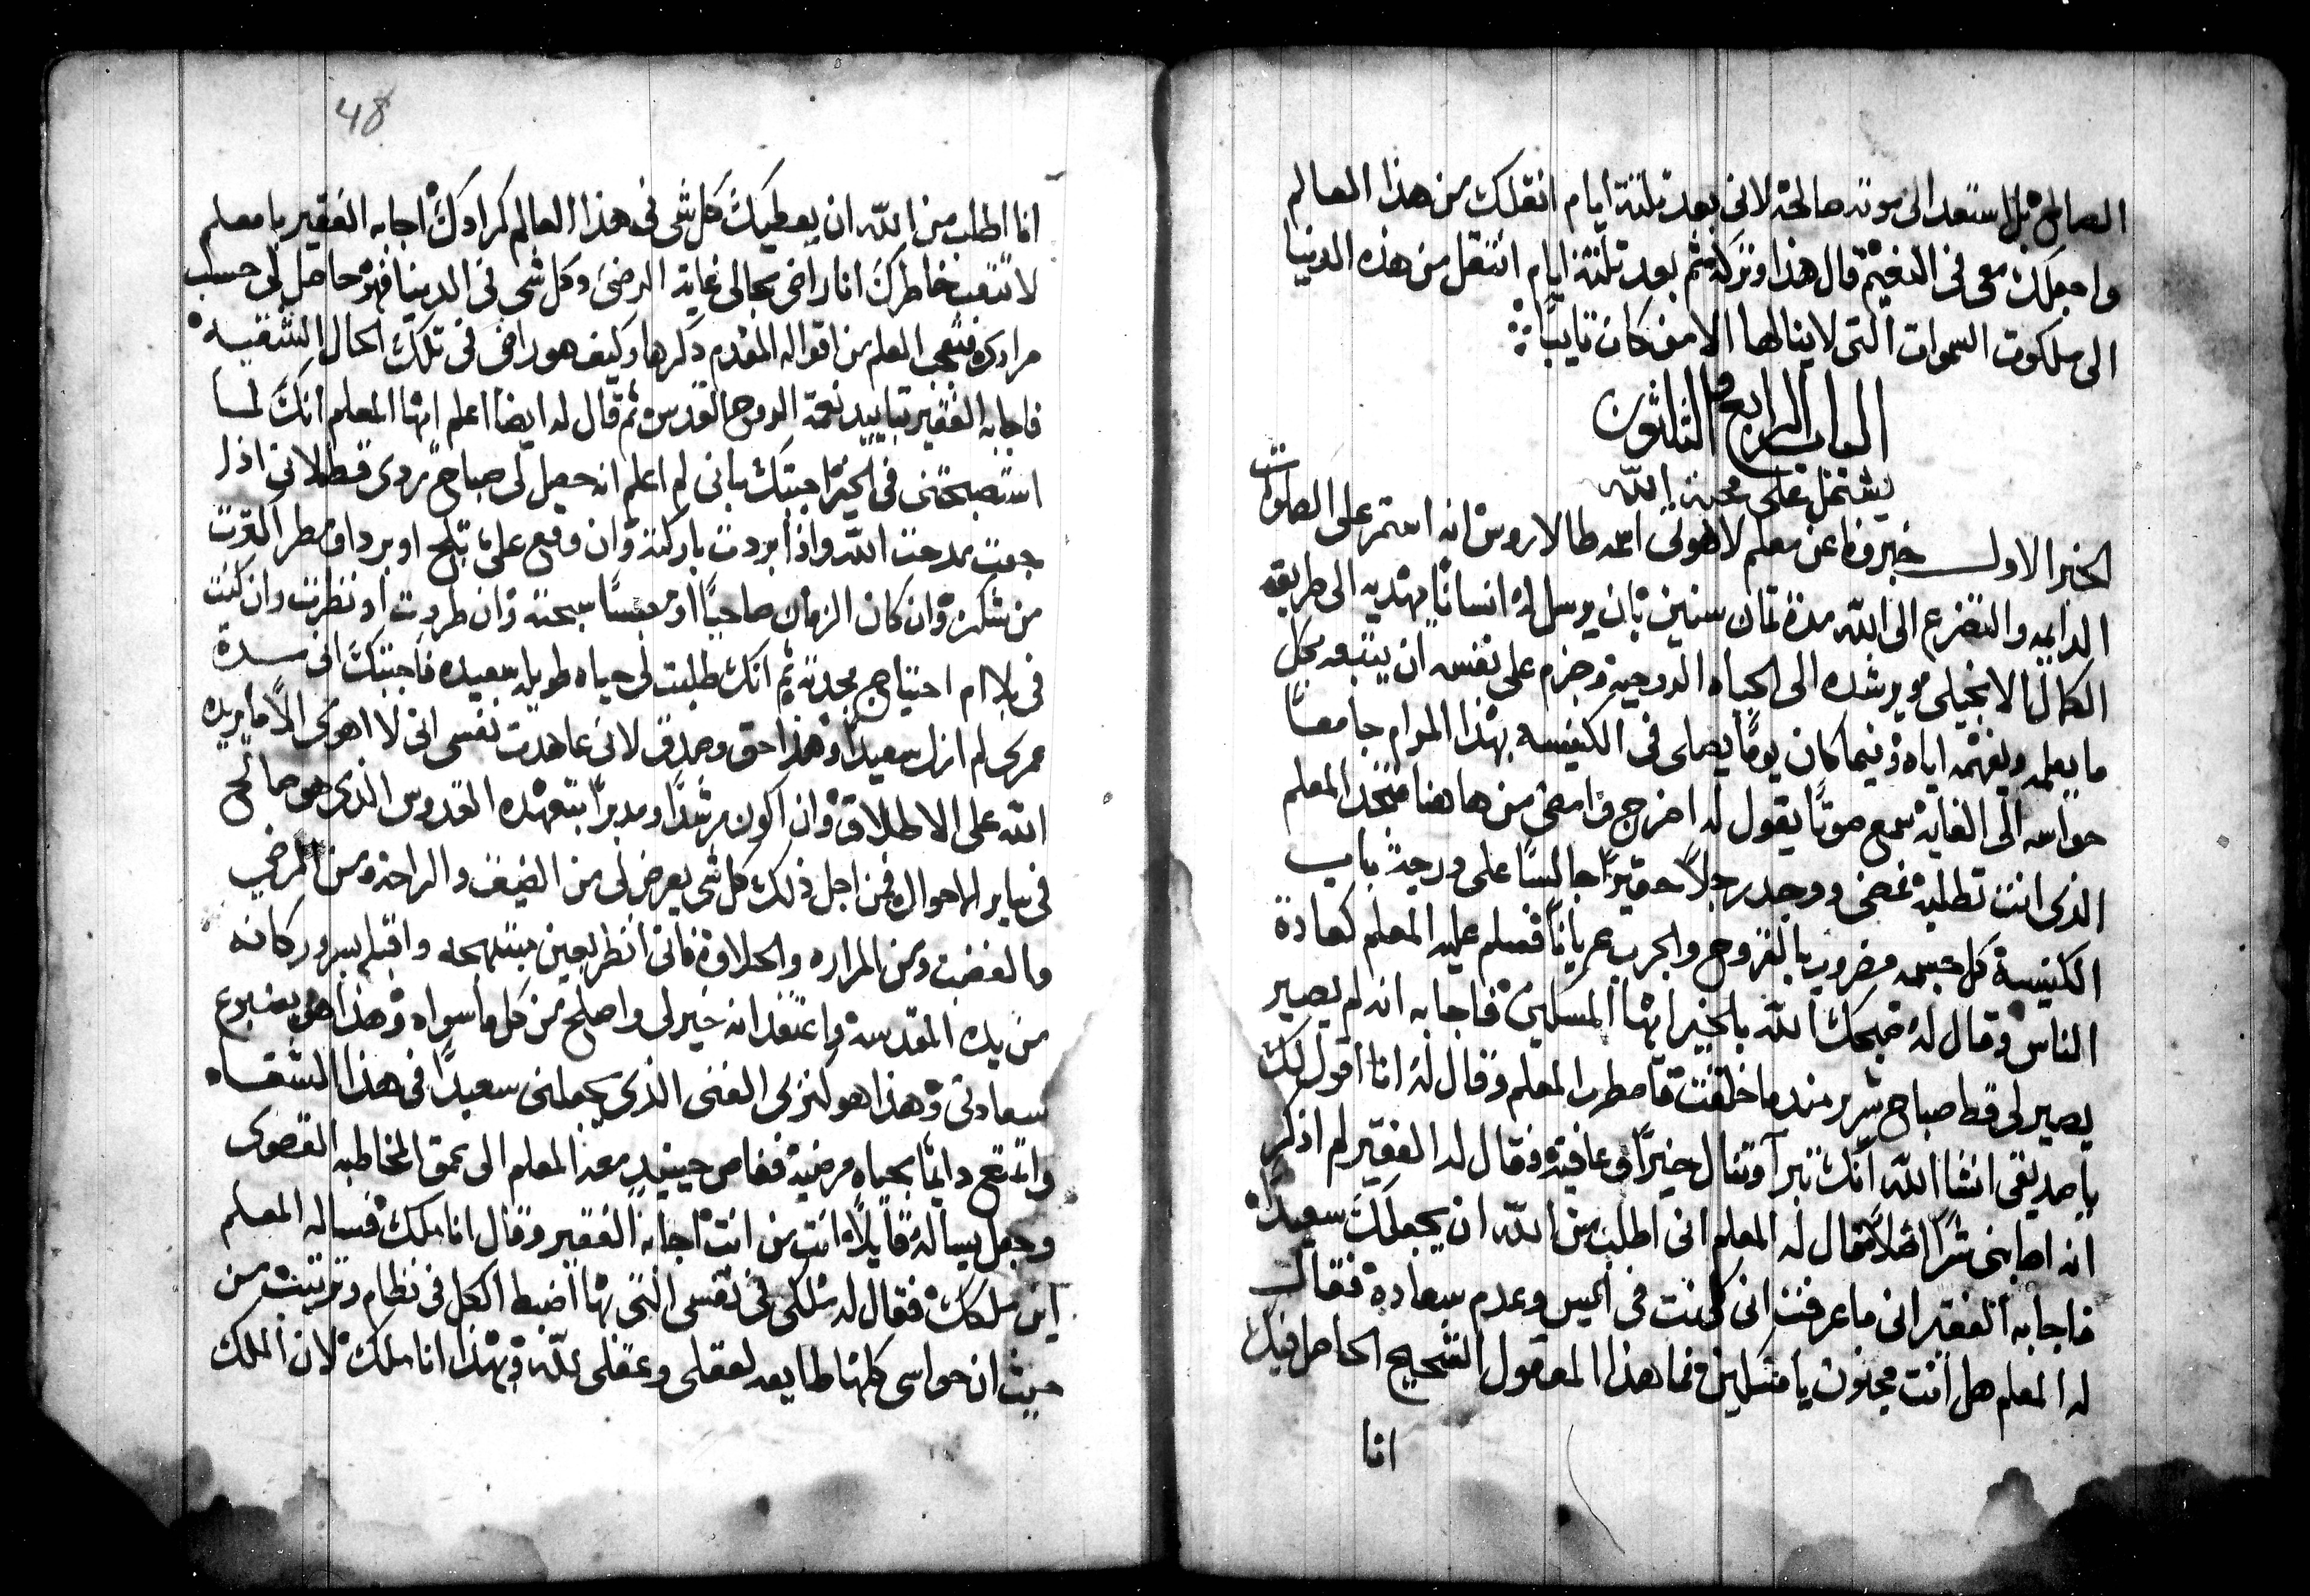 الصالح بل استعد الى موته صالحة لانى بعد ثلثة ايام انقلك من هذا العالم
واجعلك معى فى النعيم قال هذا وتركه ثم بعد ثلثة ايام انتقل من هذه الدنيا
الى ملكوت السموات التى لا ينالها الا من كان تايبًا
الباب الرابع والثلثون
يشتمل على محبة الله
الخبر الاول خبرونا عن معلم لاهوتى اسمه طالاروس انه استمر على الصلوات
الدايمه والتضرع الى الله مدة ثمان سنين بان يرسل له انسانًا يهديه الى طريقة
الكمال الانجيلى ويرشده الى الحياه الروحية وجزم على نفسه ان يتبعه بكل
ما يعلمه ويفهمه اياه وفيما كان يومًا يصلى فى الكنيسه بهذا المرام جامعًا
حواسه الى الغايه سمع صوتًا يقول له اخرج وامضى من هاهنا فتجد المعلم
الذى انت تطلبه فمضى ووجد رجلاً حقيرًا جالسًا على درجة باب
الكنيسة كل جسمه مضروب بالقروح والجرب عريانًا فسلم عليه المعلم كعادة
الناس وقال له صبحك الله بالخير ايها المسكين فاجابه انه لم يصير
يصير لى قط صباح شرير منذ ما خلقت فاضطرب المعلم وقال له انا اقول لك
يا صديقى انشا الله انك تبرا وتنال خيرًا وعافية فقال له الفقير لم اذكر
انه اصابنى شرًا اصلاً فقال له المعلم انى اطلب من الله ان يجعلك سعيدًا
فاجابه الفقير انى ما عرفت انى كنت فى اليس وعدم سعادة فقال
له المعلم هل انت مجنون يا مسكين فما هذا المعقول القبيح الحاصل فيك
انا
48
انا اطلب من الله ان يعطيك كل شى فى هذا العالم كمرادك اجابه الفقير يا معلم
لا تتعب خاطرك انا راضى بحالى غاية الرضى وكل شى فى الدينا فهو حاصل لى حسب
مرادى فتعجب المعلم من اقواله المقدم ذكرها وكيف هو راضى فى تلك الحال الشقيه
فاجابه الفقير بتاييد نعمة الروح القدس ثم قال له ايضا اعلم ايها المعلم انك لما
استصبحتنى فى الخير اجبتك بانى لم اعلم انه حصل لى صباح ردى قط لانى اذا
جعت مدحت الله واذا بردت باركته وان وقع على ثلج او برد او مطر القوت
من شكره وان كان الزمان صاحيًا او معبسًا سبحته وان طردت او نظرت وان كنت
فى بلا ام احتياج مجدته ثم انك طلبت لى حياه طويله سعيده فاجبتك انى مدة
عمرى لم ازل سعيدًا وهذا حق وصدق لانى عاهدت نفسى انى لا اهوى الا ما يريده
الله على الاطلاق وان اكون مرشدًا ومدبرًا بتعهده القدوس الذى هو صالح
فى ساير الاحوال فمن اجل ذلك كل شى يعرض لى من الضيق والراحة ومن المرضى
والغضب ومن المراره والحلاوة فانى انظر بعين مبتهجه واقبله بسرور كانه
من يده المقدسه واعتقد انه خير لى واصلح من كل ما سواه وهذا هى ينبوع
سعادتى وهذا هو كنزى الغنى الذى يجعلنى سعيدًا فى هذا الشقاه
واتمتع دايمًا بحياه مرضية فغاص حينيد معه المعلم الى عمق المخاطبه القصوى
وجعل يساله قايلاً انت من انت اجابه الفقير وقال انا ملك فساله المعلم
اين ملكك فقال له ملكى فى نفسى التى بها اضبط الكل فى نظام وترتيب من
حيث ان حواسى كلها طايعه لعقلى وعقلى لله وبهذا انا ملك لان الملك